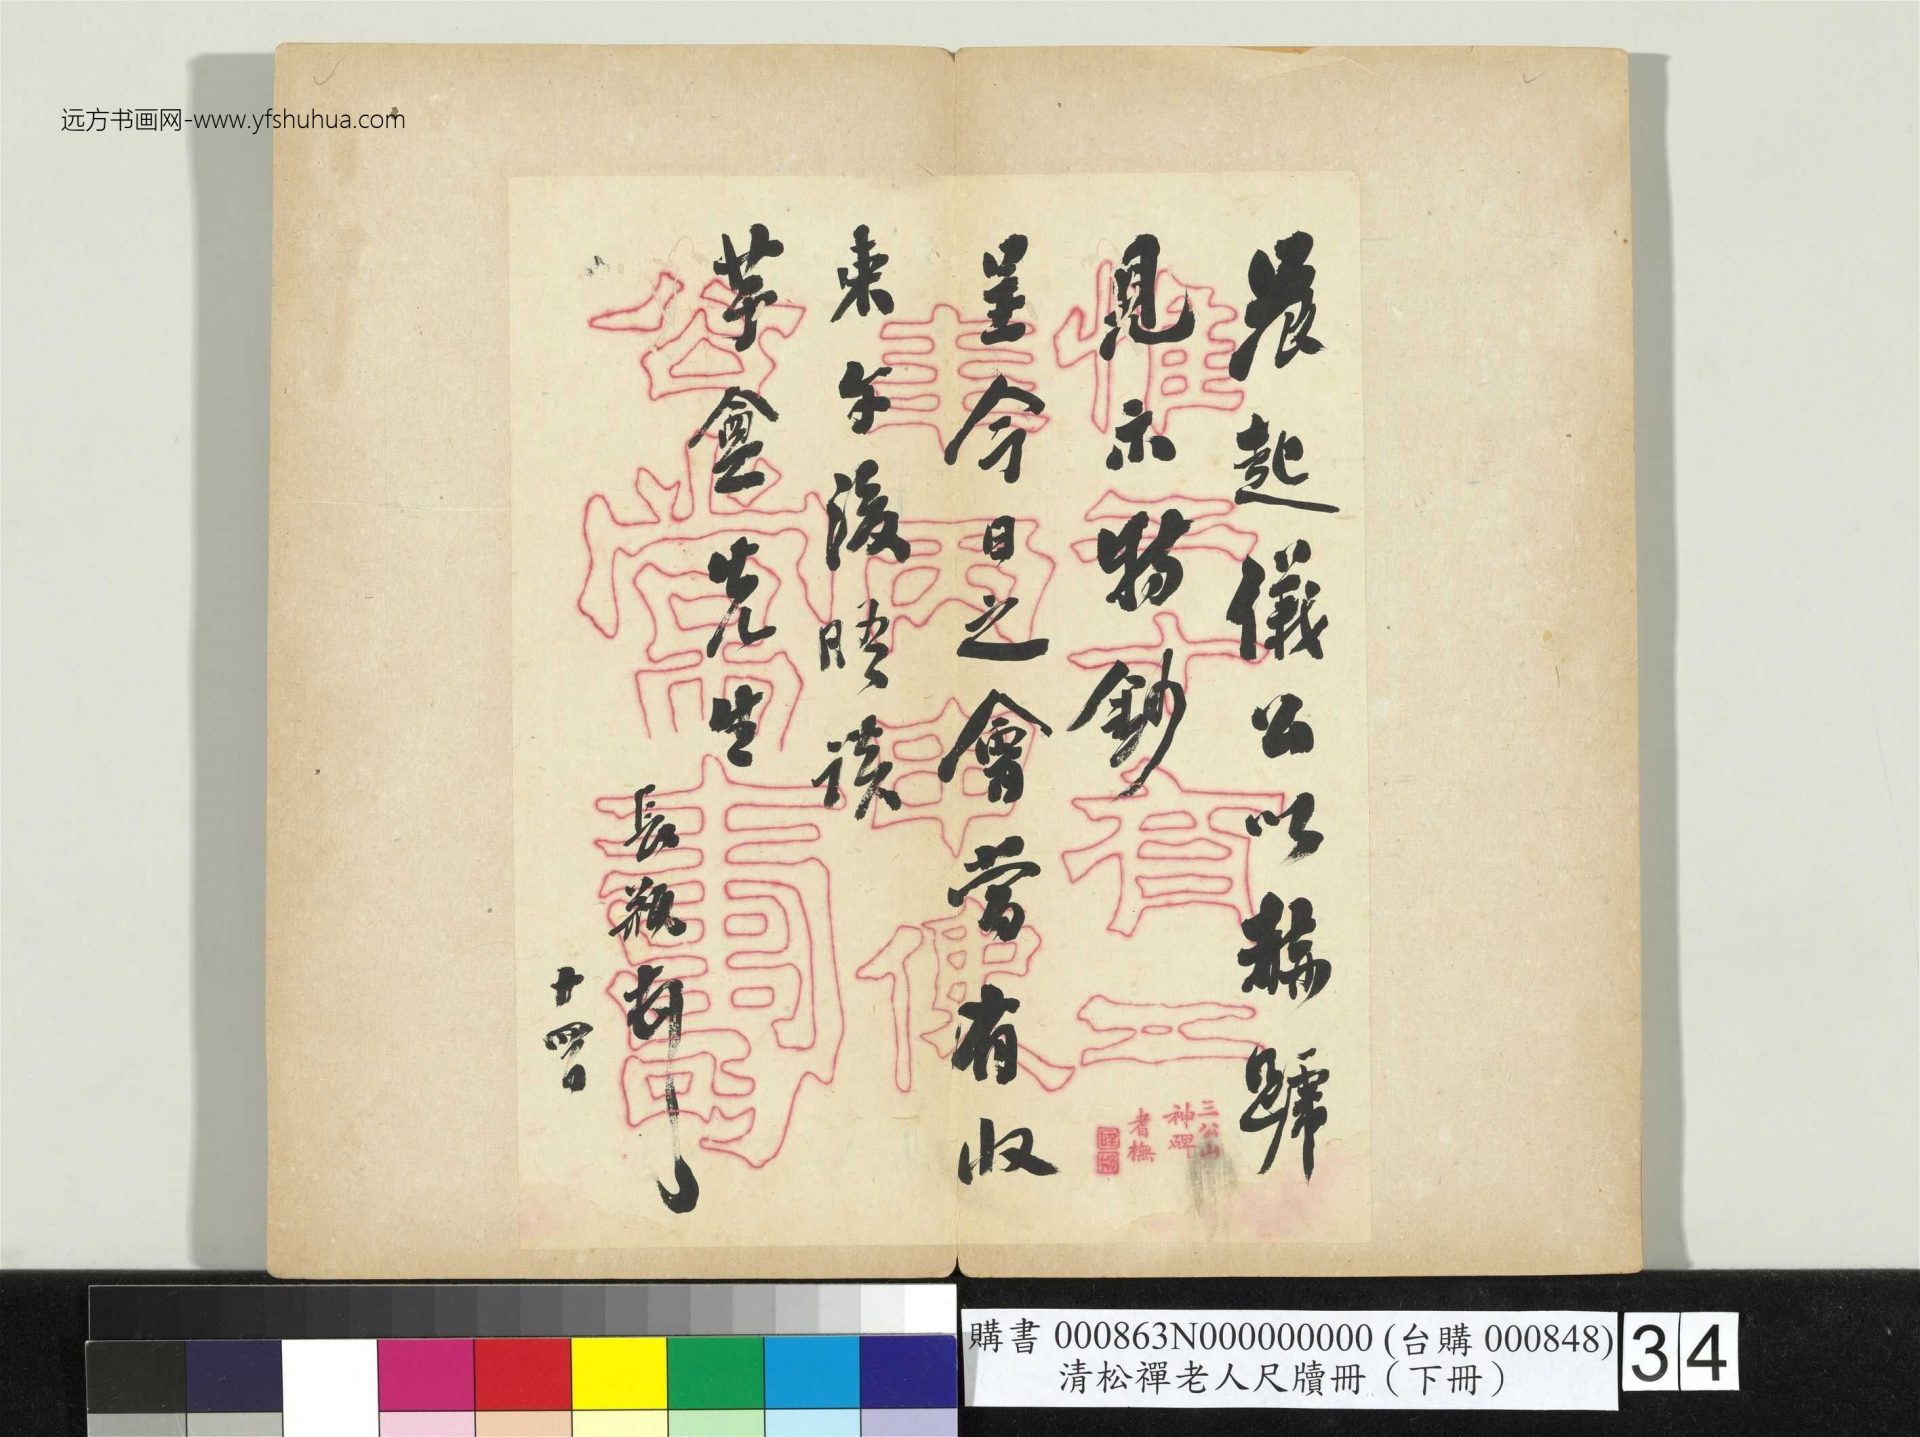 远方书画网-www.yfshuhua.com
晨起儀公以稱號
見示特鈔
呈今日之會當有收
束午後晤談
芋盦先生
長瓶頓
廿四日
三公山
神碑
耆橅
購書 000863N000000000 (台購 000848)
清松禪老人尺牘冊（下冊）
34